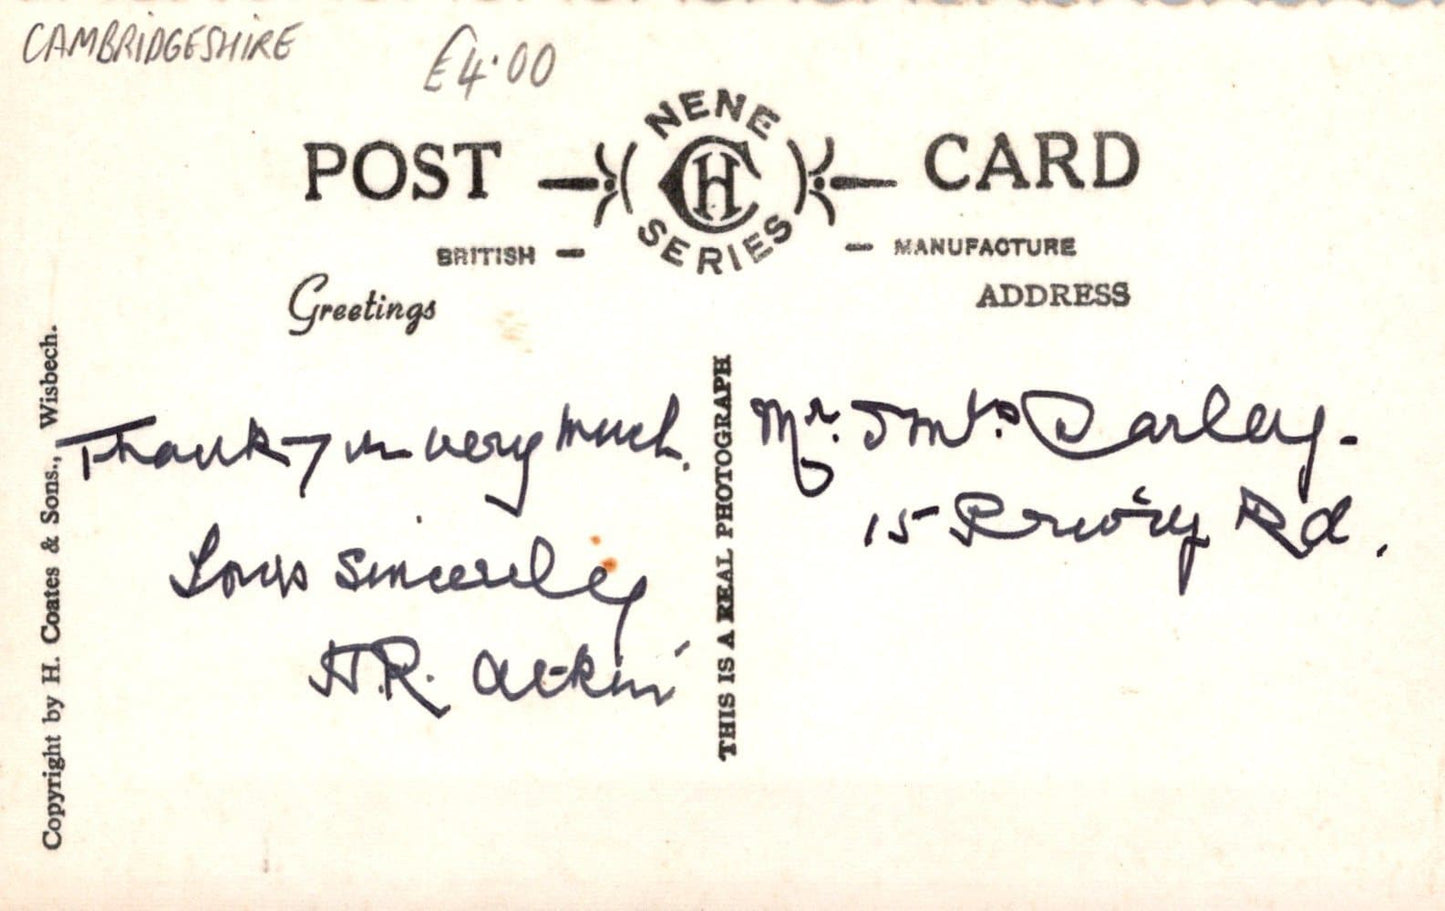 CAMBRIDGESHIRE
£4.00
NENE
POST CH CARD
SERIES
BRITISH — — MANUFACTURE
Greetings
ADDRESS
Copyright by H. Coates & Sons., Wisbech.
Thank you very much.
Yours Sincerely
H.R. Atkin
THIS IS A REAL PHOTOGRAPH
Mr. & Mrs Darley.
15 Priory Rd.